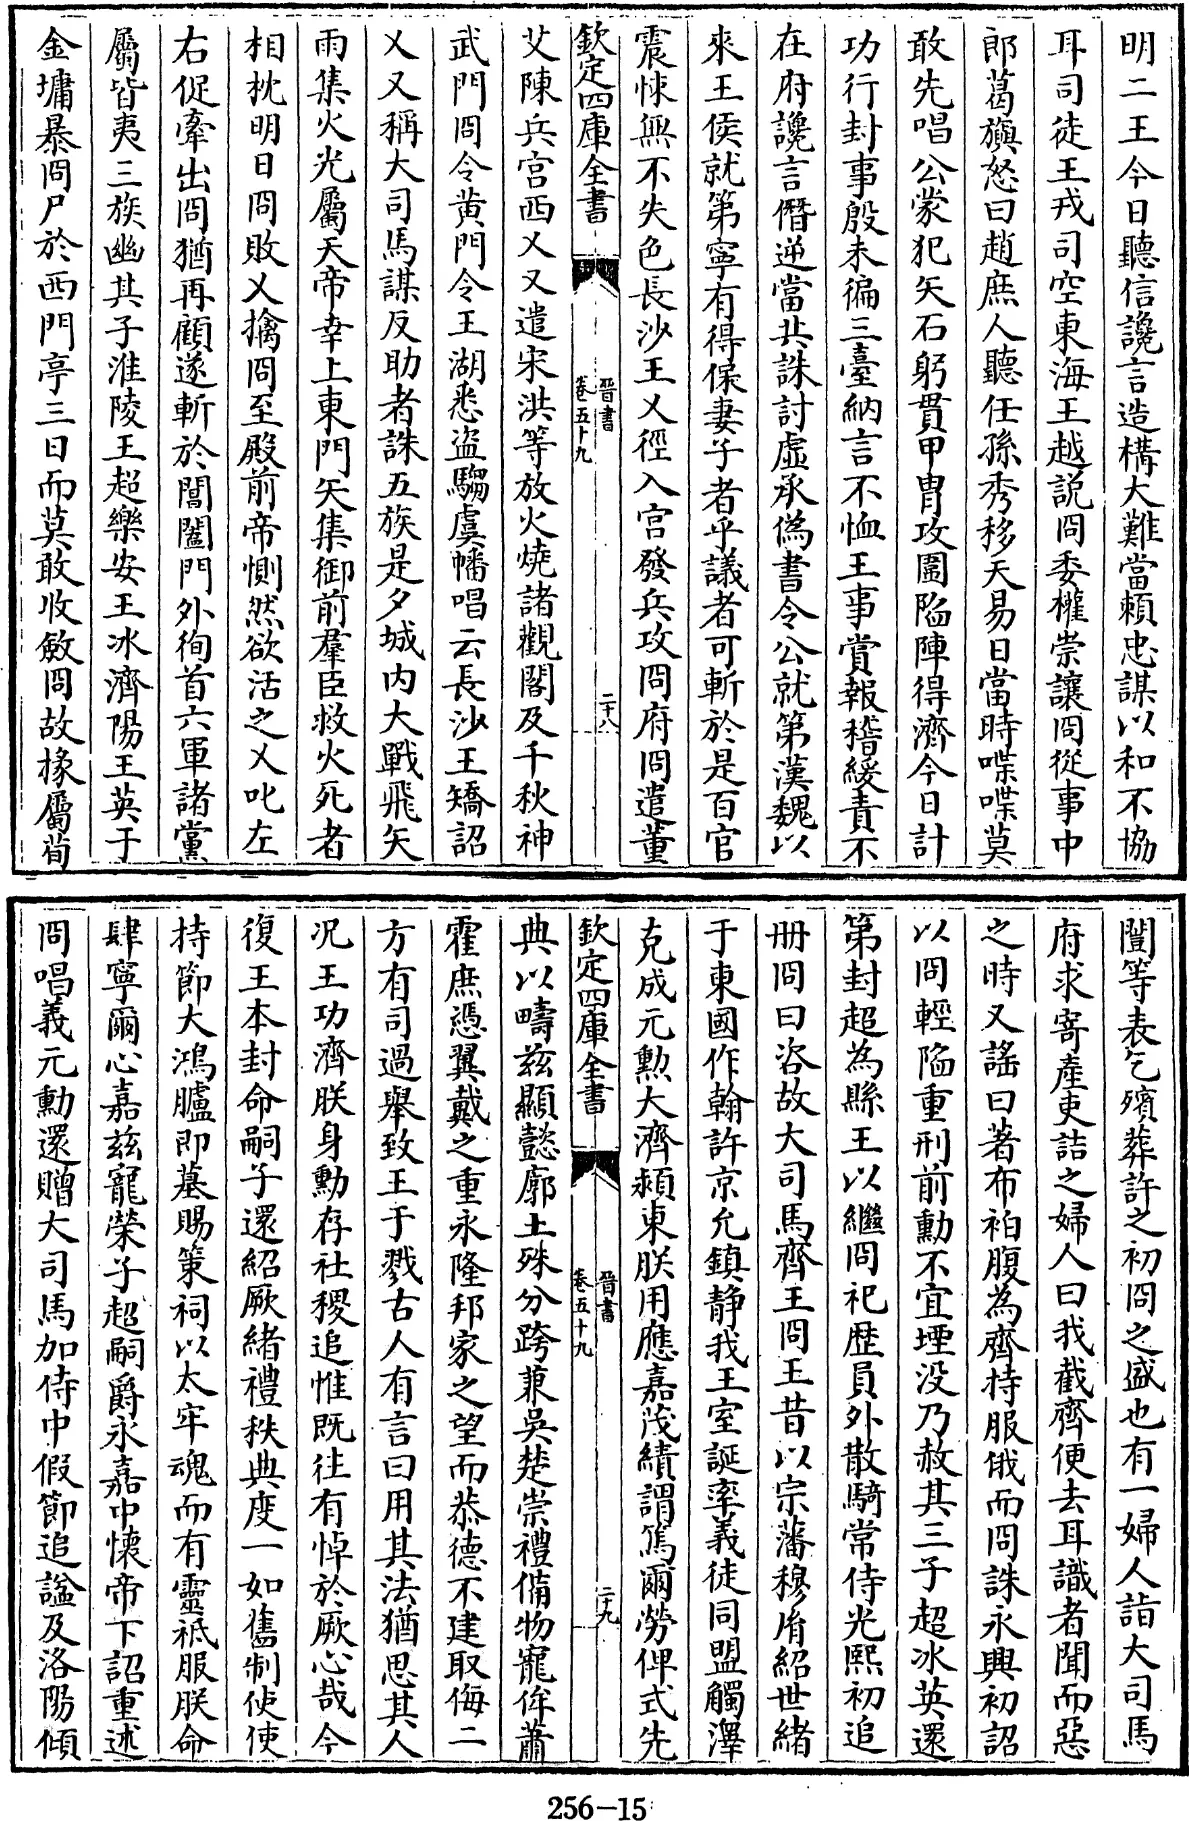 明二王今日聽信讒言造構大難當賴忠謀以和不協
耳司徒王戎司空東海王越説冏委權崇讓冏從事中
郎葛旟怒曰趙庶人聽任孫秀移天易日當時喋喋莫
敢先唱公蒙犯矢石躬貫甲胄攻圍陷陣得濟今日計
功行封事殷未徧三臺納言不恤王事賞報稽緩責不
在府讒言僭逆當共誅討虛承偽書令公就第漢魏以
來王侯就第寧有得保妻子者乎議者可斬於是百官
震悚無不失色長沙王乂徑入宫發兵攻冏府冏遣董
欽定四庫全書
晉書
卷五十九
二十八
艾陳兵宫西乂又遣宋洪等放火燒諸觀閣及千秋神
武門冏令黄門令王湖悉盜騶虞幡唱云長沙王矯詔
乂又稱大司馬謀反助者誅五族是夕城内大戰飛矢
雨集火光屬天帝幸上東門矢集御前羣臣救火死者
相枕明日冏敗乂擒冏至殿前帝惻然欲活之乂叱左
右促牽出冏猶再顧遂斬於閶闔門外徇首六軍諸黨
屬皆夷三族幽其子淮陵王超樂安王冰濟陽王英于
金墉暴冏尸於西門亭三日而莫敢收斂冏故掾屬荀
闓等表乞殯葬許之初冏之盛也有一婦人詣大司馬
府求寄產吏詰之婦人曰我截齊便去耳識者聞而惡
之時又謠曰著布袙腹為齊持服俄而冏誅永興初詔
以冏輕陷重刑前勳不宜堙没乃赦其三子超冰英還
第封超為縣王以繼冏祀歴員外散騎常侍光熙初追
册冏曰咨故大司馬齊王冏王昔以宗藩穆胤紹世緒
于東國作翰許京允鎮静我王室誕率義徒同盟觸澤
克成元勲大濟潁東朕用應嘉茂績謂篤爾勞俾式先
欽定四庫全書
晉書
卷五十九
二十九
典以疇兹顯懿廓土殊分跨兼吳楚崇禮備物寵侔蕭
霍庶憑翼戴之重永隆邦家之望而恭德不建取侮二
方有司過舉致王于戮古人有言曰用其法猶思其人
况王功濟朕身勳存社稷追惟既往有悼於厥心哉今
復王本封命嗣子還紹厥緒禮秩典度一如舊制使使
持節大鴻臚即墓賜策祠以太牢魂而有靈祗服朕命
肆寧爾心嘉兹寵榮子超嗣爵永嘉中懷帝下詔重述
冏唱義元勳還贈大司馬加侍中假節追諡及洛陽傾
256-15